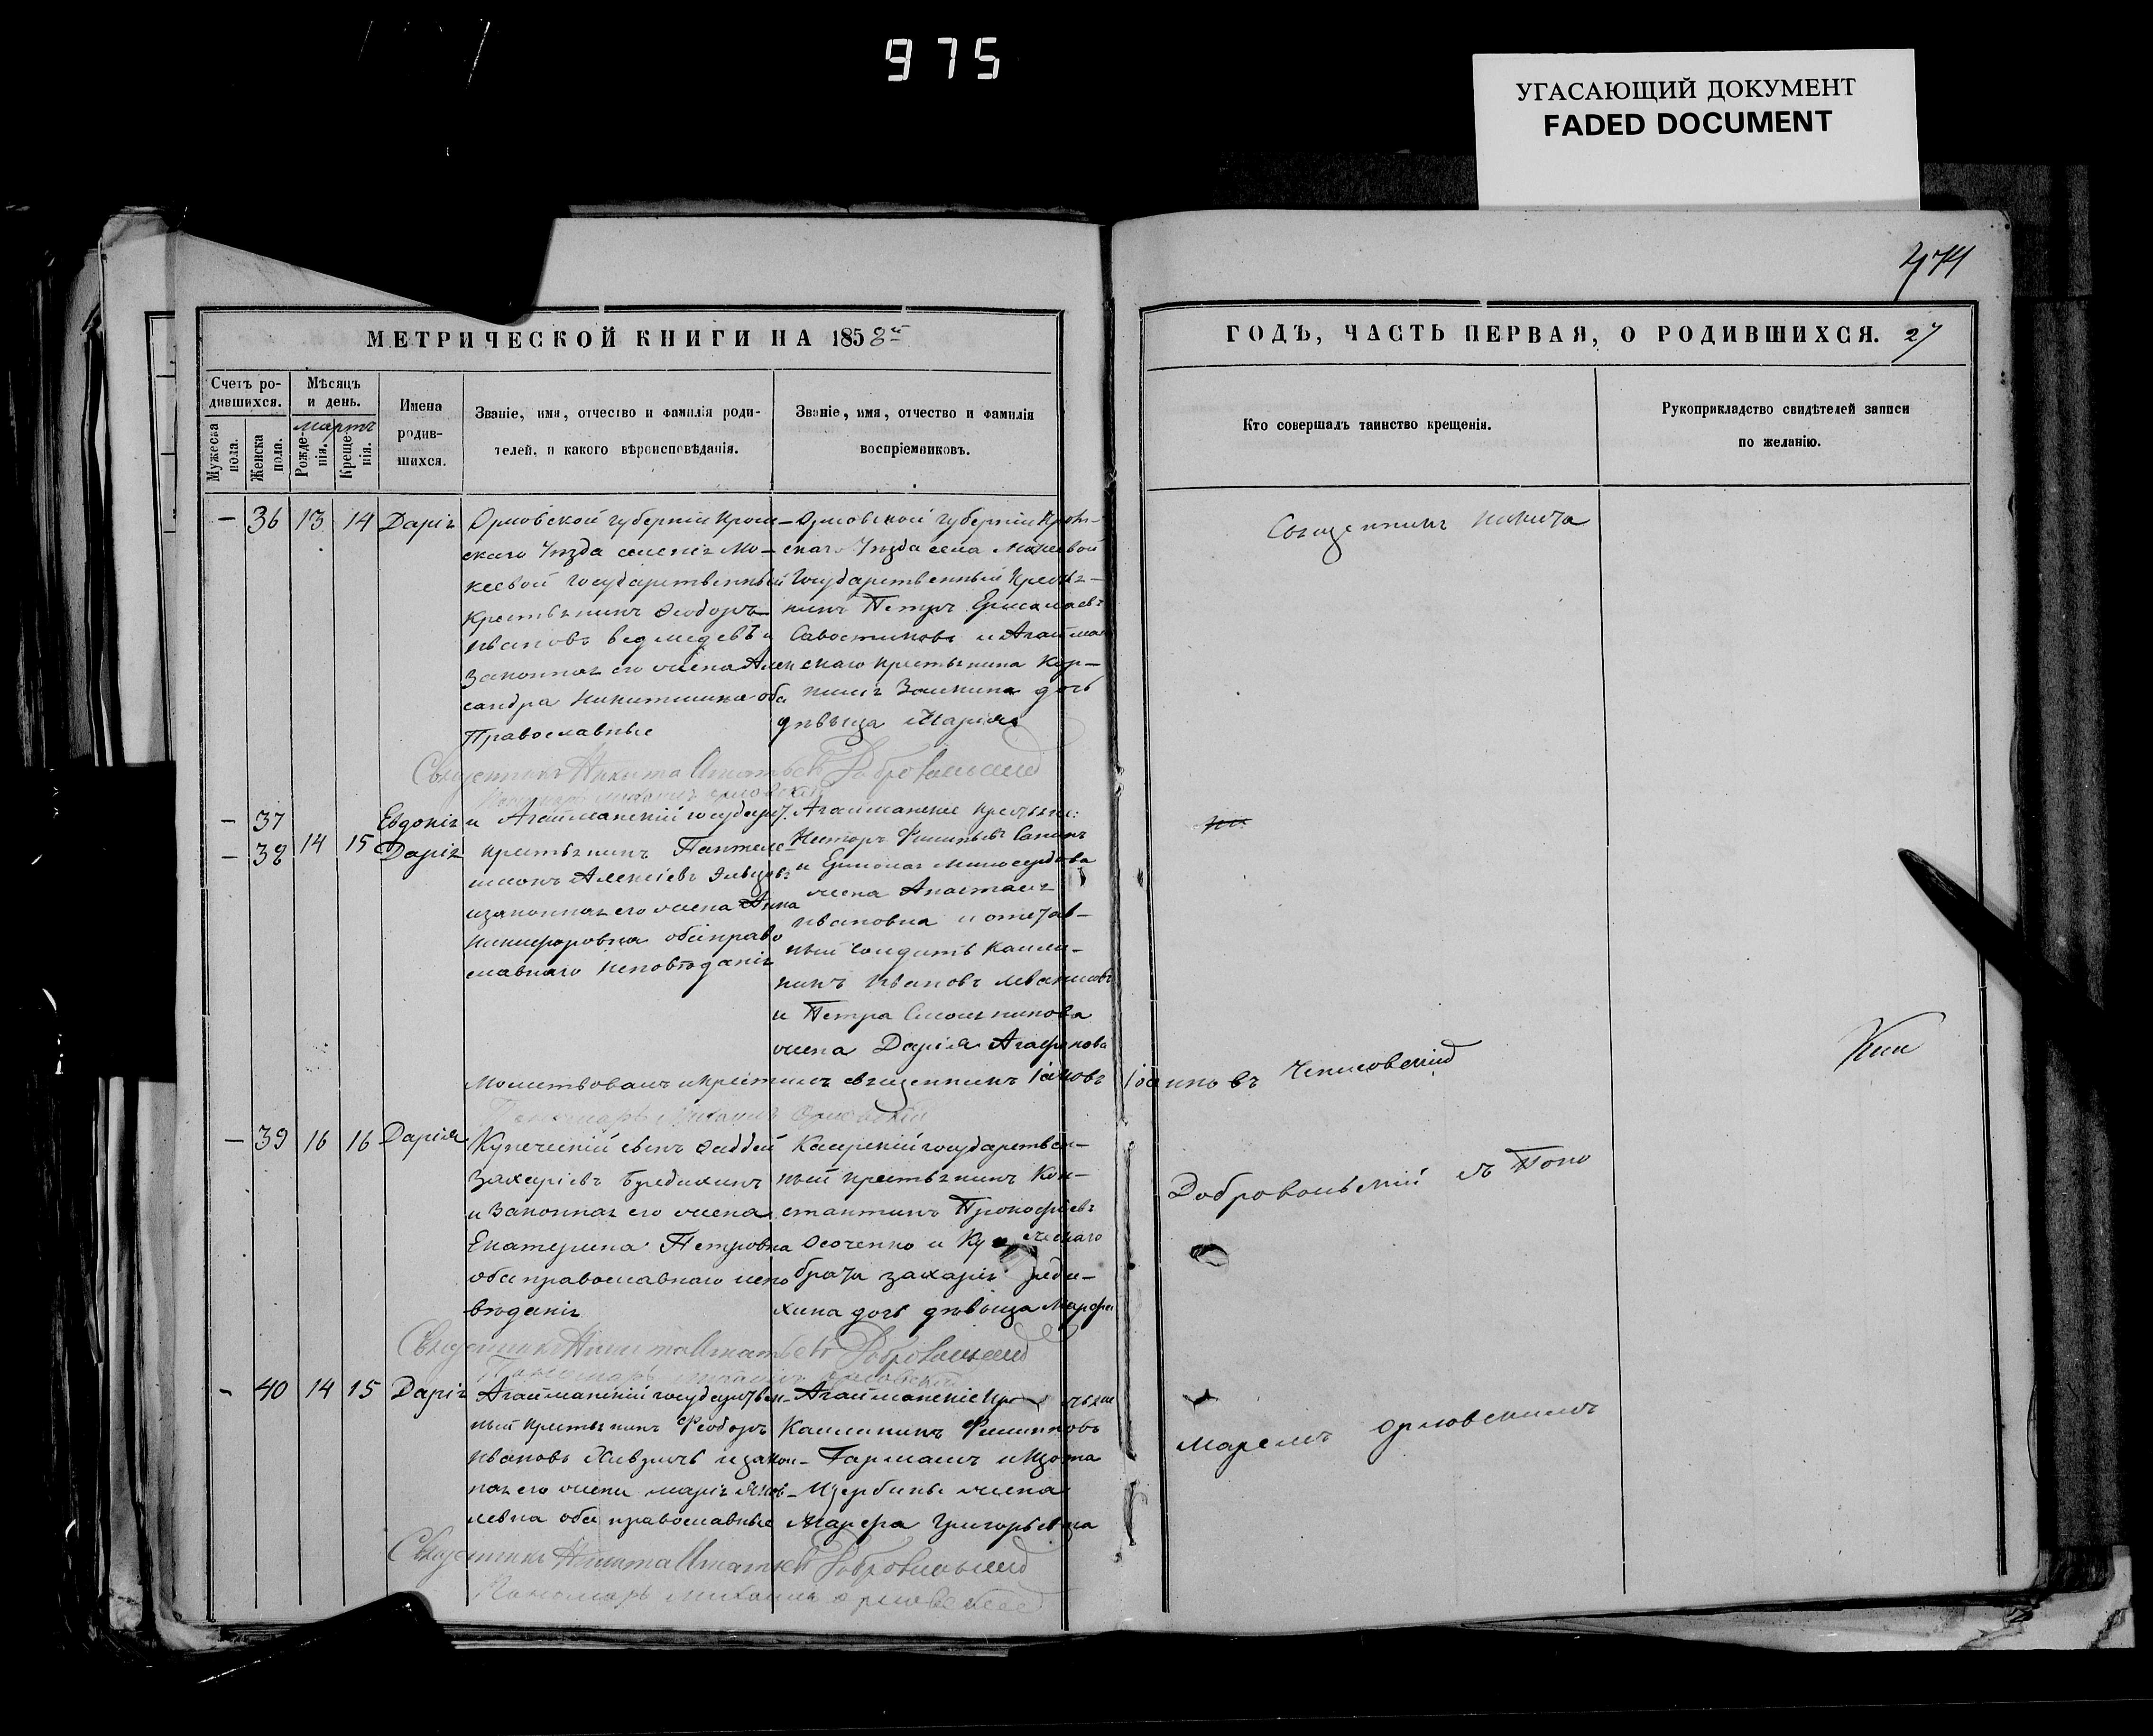 975
УГАСАЮЩИЙ ДОКУМЕНТ
FADED DOCUMENT
474
МЕТРИЧЕСКОЙ КНИГИ НА 1858й
ГОДЪ, ЧАСТЬ ПЕРВАЯ, О РОДИВШИХСЯ. 27
Счетъ ро-
дившихся.
Мужеска пола.
Женска пола.
Мѣсяцъ
и день.
мартъ
Рожде-
нія.
Креще-
нія.
Имена
родив-
шихся.
Званіе, имя, отчество и фамилія роди-
телей, и какого вѣроисповѣданія.
Званіе, имя, отчество и фамилія
воспріемниковъ.
Кто совершалъ таинство крещенія.
Рукоприкладство свидѣтелей записи
по желанію.
— 36 13 14 Дарія
Орловской губерніи Кром-
скаго Уѣзда селенія Мо-
кеевой государственный
крестьянинъ Ѳеодоръ
Ивановъ Ведмедевъ и
Законная его жена Алек
сандра Никитишна оба
Православные
Орловской губерніи Кром-
скаго Уѣзда села Мокеевой
Государственный Кресть-
нинъ Петръ
и Агайман
скаго крестьянина Кор-
нилія дочь
дѣвица Марія
Священникъ Никита
Священникъ Никита Игнатьевъ Добровольскій
Пономарь Михаилъ Орловскій
— 37
— 38 14 15
Евдокія и
Дарія
Агайманскій государст.
крестьянинъ Пантеле-
имонъ Алексіевъ
и законная его жена Анна
Никифоровна оба право
славнаго исповѣданія
Агайманскіе крестьяне:
Несторъ Филиповъ
и Ермолая Милосердова
жена Анастасія
Ивановна и отстав-
ный солдатъ Калли-
никъ Ивановъ
и Петра
жена Дарія Агафонова
Молитвовалъ и крестилъ священникъ Іаковъ Іоанновъ
Пономарь Михаилъ Орловскій
— 39 16 16 Дарія
Купеческій сынъ Ѳаддей
Захаріевъ Бредихинъ
и Законная его жена
Екатерина Петровна
оба православнаго испо
вѣданія
Каирскій государствен-
ный крестьянинъ Кон-
стантинъ Прокофіевъ
Осоченко и Купеческаго
брата Захарія Бреди-
хина дочь дѣвица Марфа
Добровольскій съ Поно
Священникъ Никита Игнатьевъ Добровольскій
Пономарь Михаилъ Орловскій
- 40 14 15 Дарія
Агайманскій государствен-
ный крестьянинъ Феодоръ
Ивановъ и закон-
ная его жена Марія Яков-
левна оба православные
Агайманскіе
Каллиникъ Филипповъ
Гармашъ и Изота
Щербины жена
Марфа Григорьевна
маремъ Орловскимъ
Священникъ Никита Игнатьевъ Добровольскій
Пономарь Михаилъ Орловскій